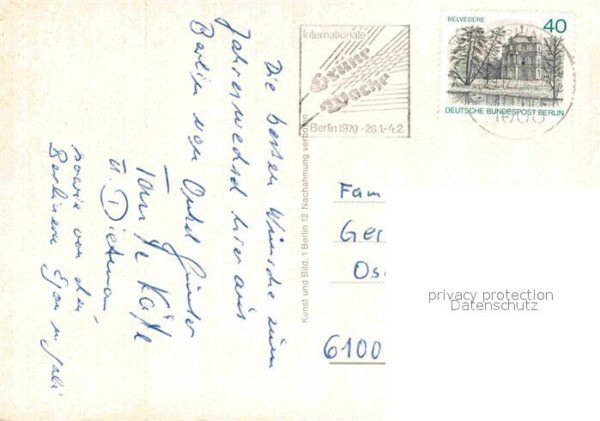 Die besten Wünsche zum
Jahreswechsel hier aus
Berlin von Onkel Günter
Tante Käthe
u. Dietmar
sowie von den
Berlinern Egon u.
Internationale
Grüne
Woche
Berlin 1979 - 26.1.-4.2.
BELVEDERE
40
DEUTSCHE BUNDESPOST BERLIN
1000
Kunst und Bild, 1 Berlin 12 Nachahmung verboten
Fam
Ger
Os
6100
privacy protection
Datenschutz